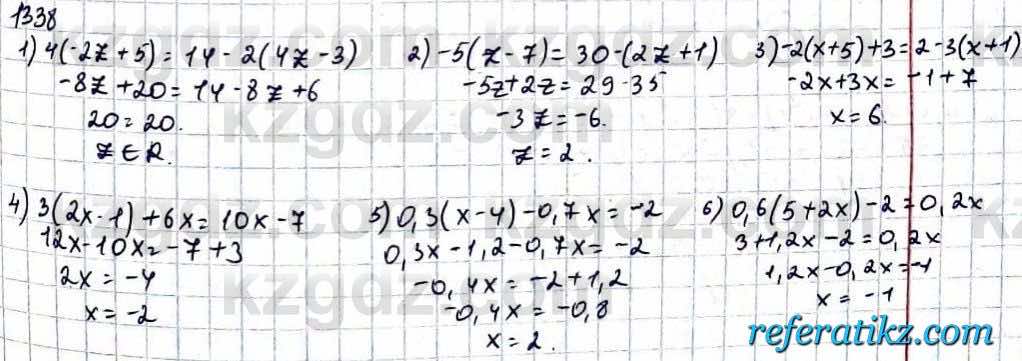 1338
1) 4(-2z+5) = 14 - 2(4z-3)
-8z+20 = 14-8z+6
20 = 20.
z ∈ R.
2) -5(z-7) = 30-(2z+1)
-5z+2z = 29-35
-3z = -6.
z = 2.
3) -2(x+5)+3 = 2-3(x+1)
-2x+3x = -1+7
x = 6.
4) 3(2x-1)+6x = 10x-7
12x-10x = -7+3
2x = -4
x = -2
5) 0,3(x-4)-0,7x = -2
0,3x-1,2-0,7x = -2
-0,4x = -2+1,2
-0,4x = -0,8
x = 2.
6) 0,6(5+2x)-2 = 0,2x
3+1,2x-2 = 0,2x
1,2x-0,2x = -1
x = -1
kzgdz.com
referatikz.com